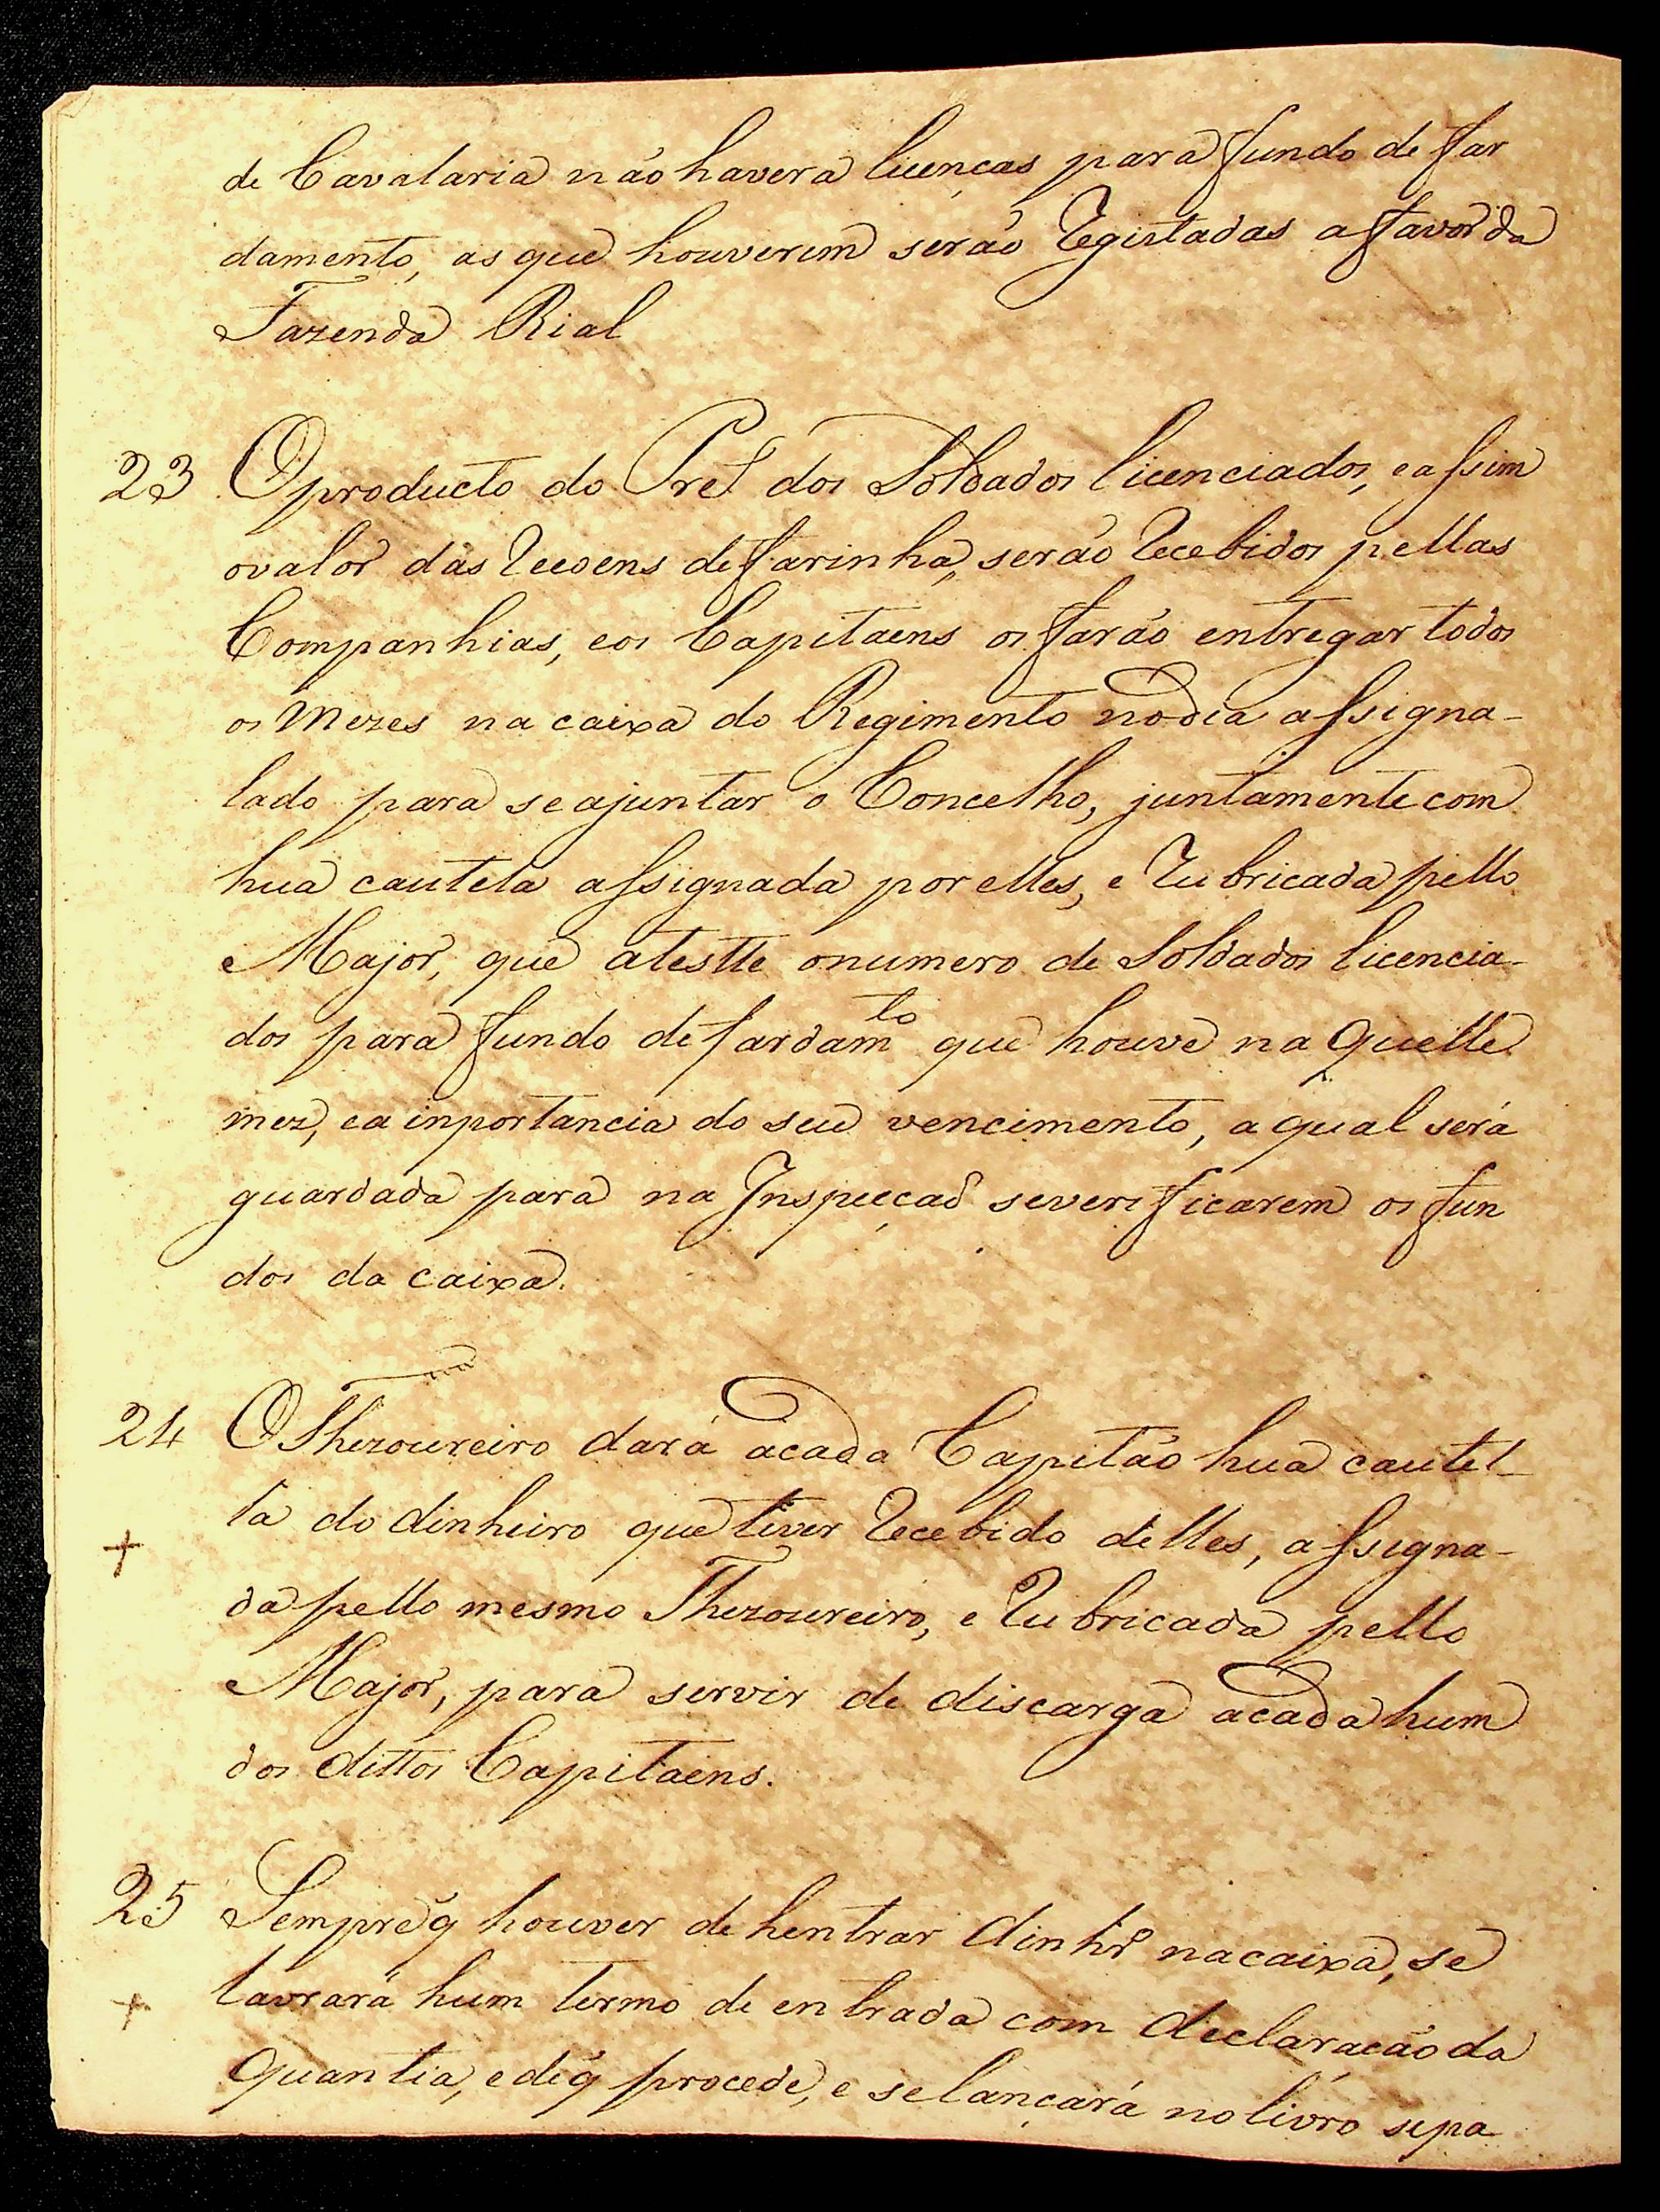 de Cavalaria não havera licenças para fundo de far
damento, as que houverem serão Registadas afavor da
Fazenda Rial
23 Oproducto do Pret dos Soldados licenciados, eassim
ovalor das Reçoens defarinha, serão Recebidos pellas
Companhias, eos Capitaens os farão entregar todos
os Mezes na caixa do Regimento nodia assigna-
lado para seajuntar o Concelho, juntamente com
hua cautela assignada por elles, e Rubricada pello
Major, que atestte onumero de Soldados licencia-
dos para fundo defardamto que houve na quelle
mez, ea inportancia do seu vencimento, aqual será
guardada para na Inspecçaõ severificarem os fun
dos da caixa.
24 OThezoureiro dará acada Capitão hua cautel-
la do dinheiro que tiver Recebido delles, assigna-
da pello mesmo Thezoureiro, e Rubricada pello
+
Major, para servir de discarga acada hum
dos dittos Capitaens.
25 Sempre q̃ houver de hentrar dinhro nacaixa, se
lavrará hum termo de entrada com declaração da
+
quantia, e de q̃ procede, e selançará no livro sepa